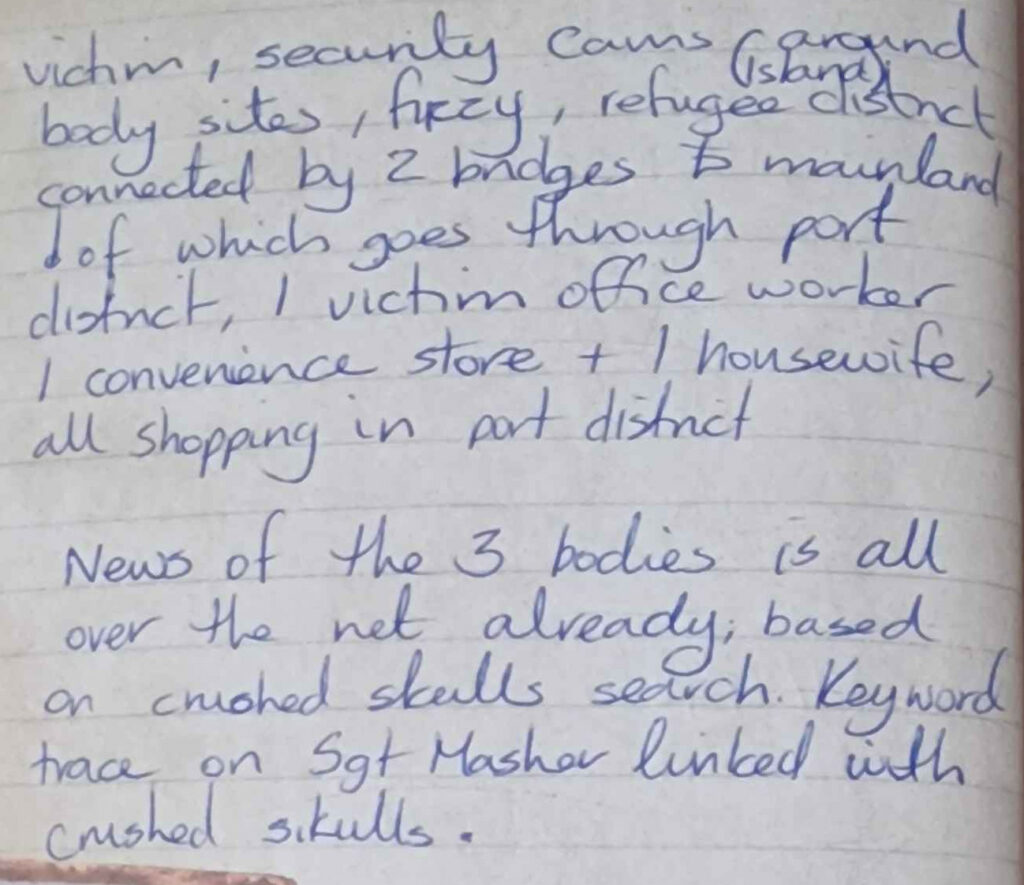 victim, security cams around
(island)
body sites, fuzzy, refugee district
connected by 2 bridges to mainland
1 of which goes through port
district, 1 victim office worker
1 convenience store + 1 housewife,
all shopping in port district
News of the 3 bodies is all
over the net already, based
on crushed skulls search. Keyword
trace on Sgt Mashov linked with
crushed skulls.